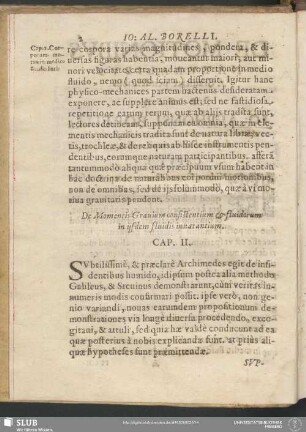 2 IO: AL. BORELLI.
Cap. 2. Cor-
porum mo-
in medio
fluido
re corpora varias magnitudines, pondera, & di-
versas figuras habentia, moveantur maiori, aut mi-
nori velocitate certa quadam proportione in medio
fluido, nemo (quod sciam) disseruit. Igitur hanc
physico-mechanices partem hactenus desideratam
exponere, ac supplere animus est; sed ne fastidiosa
repetitione earum rerum, quæ ab aliis tradita sunt,
lectores detineam, supponam ea omnia, quæ in ele-
mentis mechanicis tradita sunt de natura libræ, ve-
ctis, trochleæ, & de reliquis ab hisce instrumentis pen-
dentibus, eorumque naturam participantibus. afferã
tantummodo aliqua quæ præcipuum usum habent in
hac doctrina de naturalibus corporum motionibus,
non de omnibus, sed de ijs solummodo, quæ à vi mo-
tiva gravitatis pendent.
De Momentis Gravium consistentium & fluidorum
in ijsdem fluidis innatantium.
CAP. II.
SVbtilissimè, & præclarè Archimedes egit de insi-
dentibus humido, id ipsum postea alia methodo
Galileus, & Stevinus demonstrarunt, cùm veritas in-
numeris modis confirmari possit. ipse verò, non ge-
nio variandi, novas earundem propositionum de-
monstrationes via longè diversa procedendo, exco-
gitavi, & attuli, sed quia hæ valde conducunt ad ea
quæ posterius à nobis explicanda sunt. at prius ali-
quæ hypotheses sunt præmittendæ.
SVP-
SLUB
Wir führen Wissen.